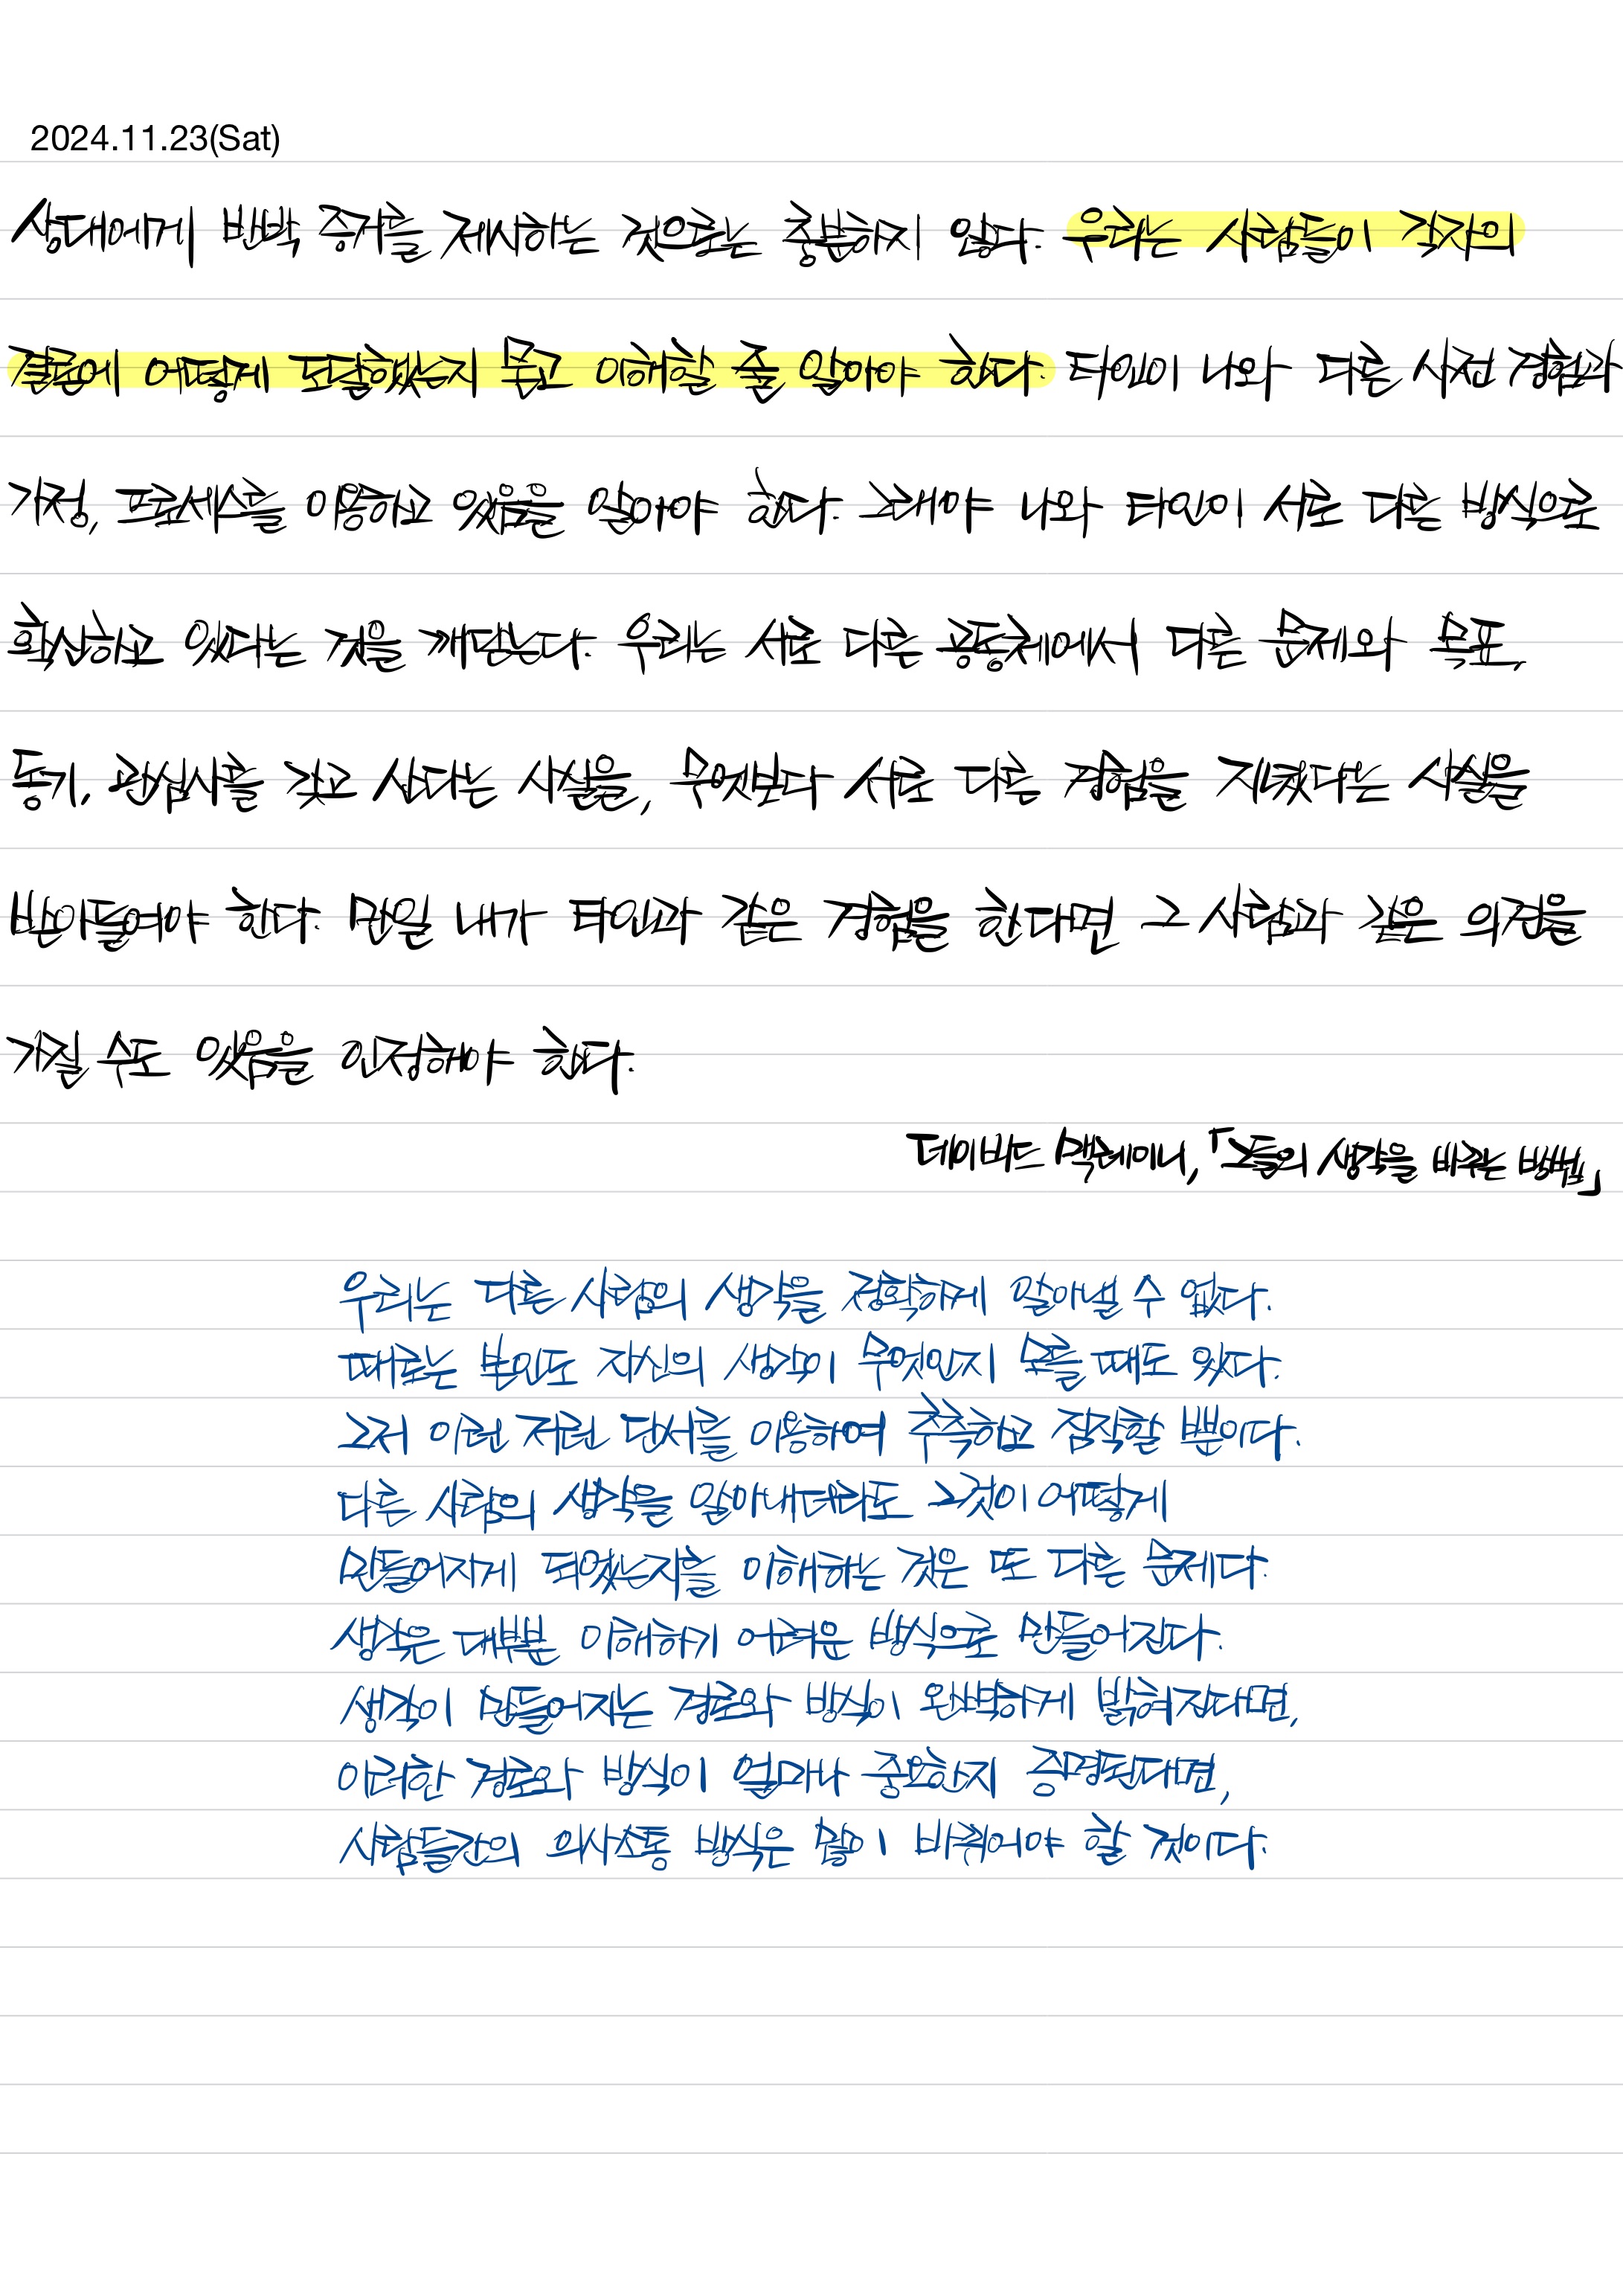 2024.11.23(Sat)
상대에게 반박 증거를 제시하는 것으로는 충분하지 않다. 우리는 사람들이 각자의
결론에 어떻게 도달했는지 묻고 이해할 줄 알아야 한다. 타인이 나와 다른 사전 경험과
가정, 프로세스를 이용하고 있음을 알아야 한다. 그래야 나와 타인이 서로 다른 방식으로
확신하고 있다는 것을 깨닫는다. 우리는 서로 다른 공동체에서 다른 문제와 목표,
동기, 관심사를 갖고 산다는 사실을, 무엇보다 서로 다른 경험을 지녔다는 사실을
받아들여야 한다. 만일 내가 타인과 같은 경험을 한다면 그 사람과 같은 의견을
가질 수도 있음을 인정해야 한다.
데이비드 맥레이니, 「그들의 생각을 바꾸는 방법」
우리는 다른 사람의 생각을 정확하게 알아낼 수 없다.
때로는 본인도 자신의 생각이 무엇인지 모를 때도 있다.
그저 이런 저런 단서를 이용하여 추측하고 짐작할 뿐이다.
다른 사람의 생각을 알아내더라도 그것이 어떻게
만들어지게 되었는지를 이해하는 것은 또 다른 문제다.
생각은 대부분 이해하기 어려운 방식으로 만들어진다.
생각이 만들어지는 경로와 방식이 완벽하게 밝혀진다면,
이러한 경로와 방식이 얼마나 중요한지 증명된다면,
사람들간의 의사소통 방식은 많이 바뀌어야 할 것이다.